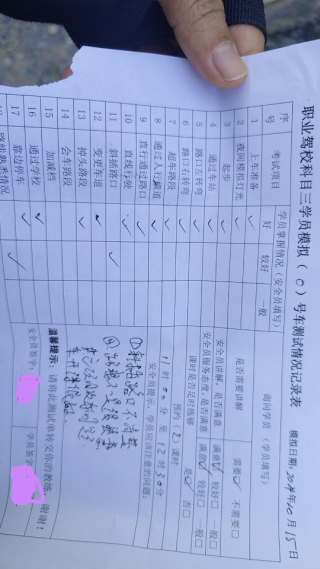 职业驾校科目三学员模拟（0）号车测试情况记录表
模拟日期: 2024年10月15日
序号 考试项目 学员掌握情况（安全员填写） 询问学员（学员填写）
好 较好 一般
1 上车准备 ✓ 是否需要讲解 需要☑ 不需要□
2 夜间模拟灯光 ✓
3 起步 ✓
4 通过车站 ✓ 安全员讲解，是否满意 满意☑ 较好□ 一般□
5 路口左转弯 ✓ 安全员服务态度，是否满意 满意☑ 较好□ 一般□
6 路口右转弯 ✓ 课时是否足时练够 是☑ 否□
7 超车路段 ✓ 预约（2）课时
8 通过人行横道 ✓ 11时00分至12时30分
9 直行通过路口 ✓ 安全员提示，学员应该注意的问题：
10 直线行驶 ✓
11 斜插路口 ✓
12 变更车道 ✓
13 掉头路段 ✓
14 会车路段
15 加减档
16 通过学校 ✓ 温馨提示：请将此测试单转交你的教练，谢谢！
17 靠边停车 ✓ 安全员签字： 学员签字
18